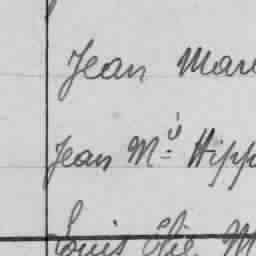 Jean Mar
Jean M.ie Hipp
Louis Elie M